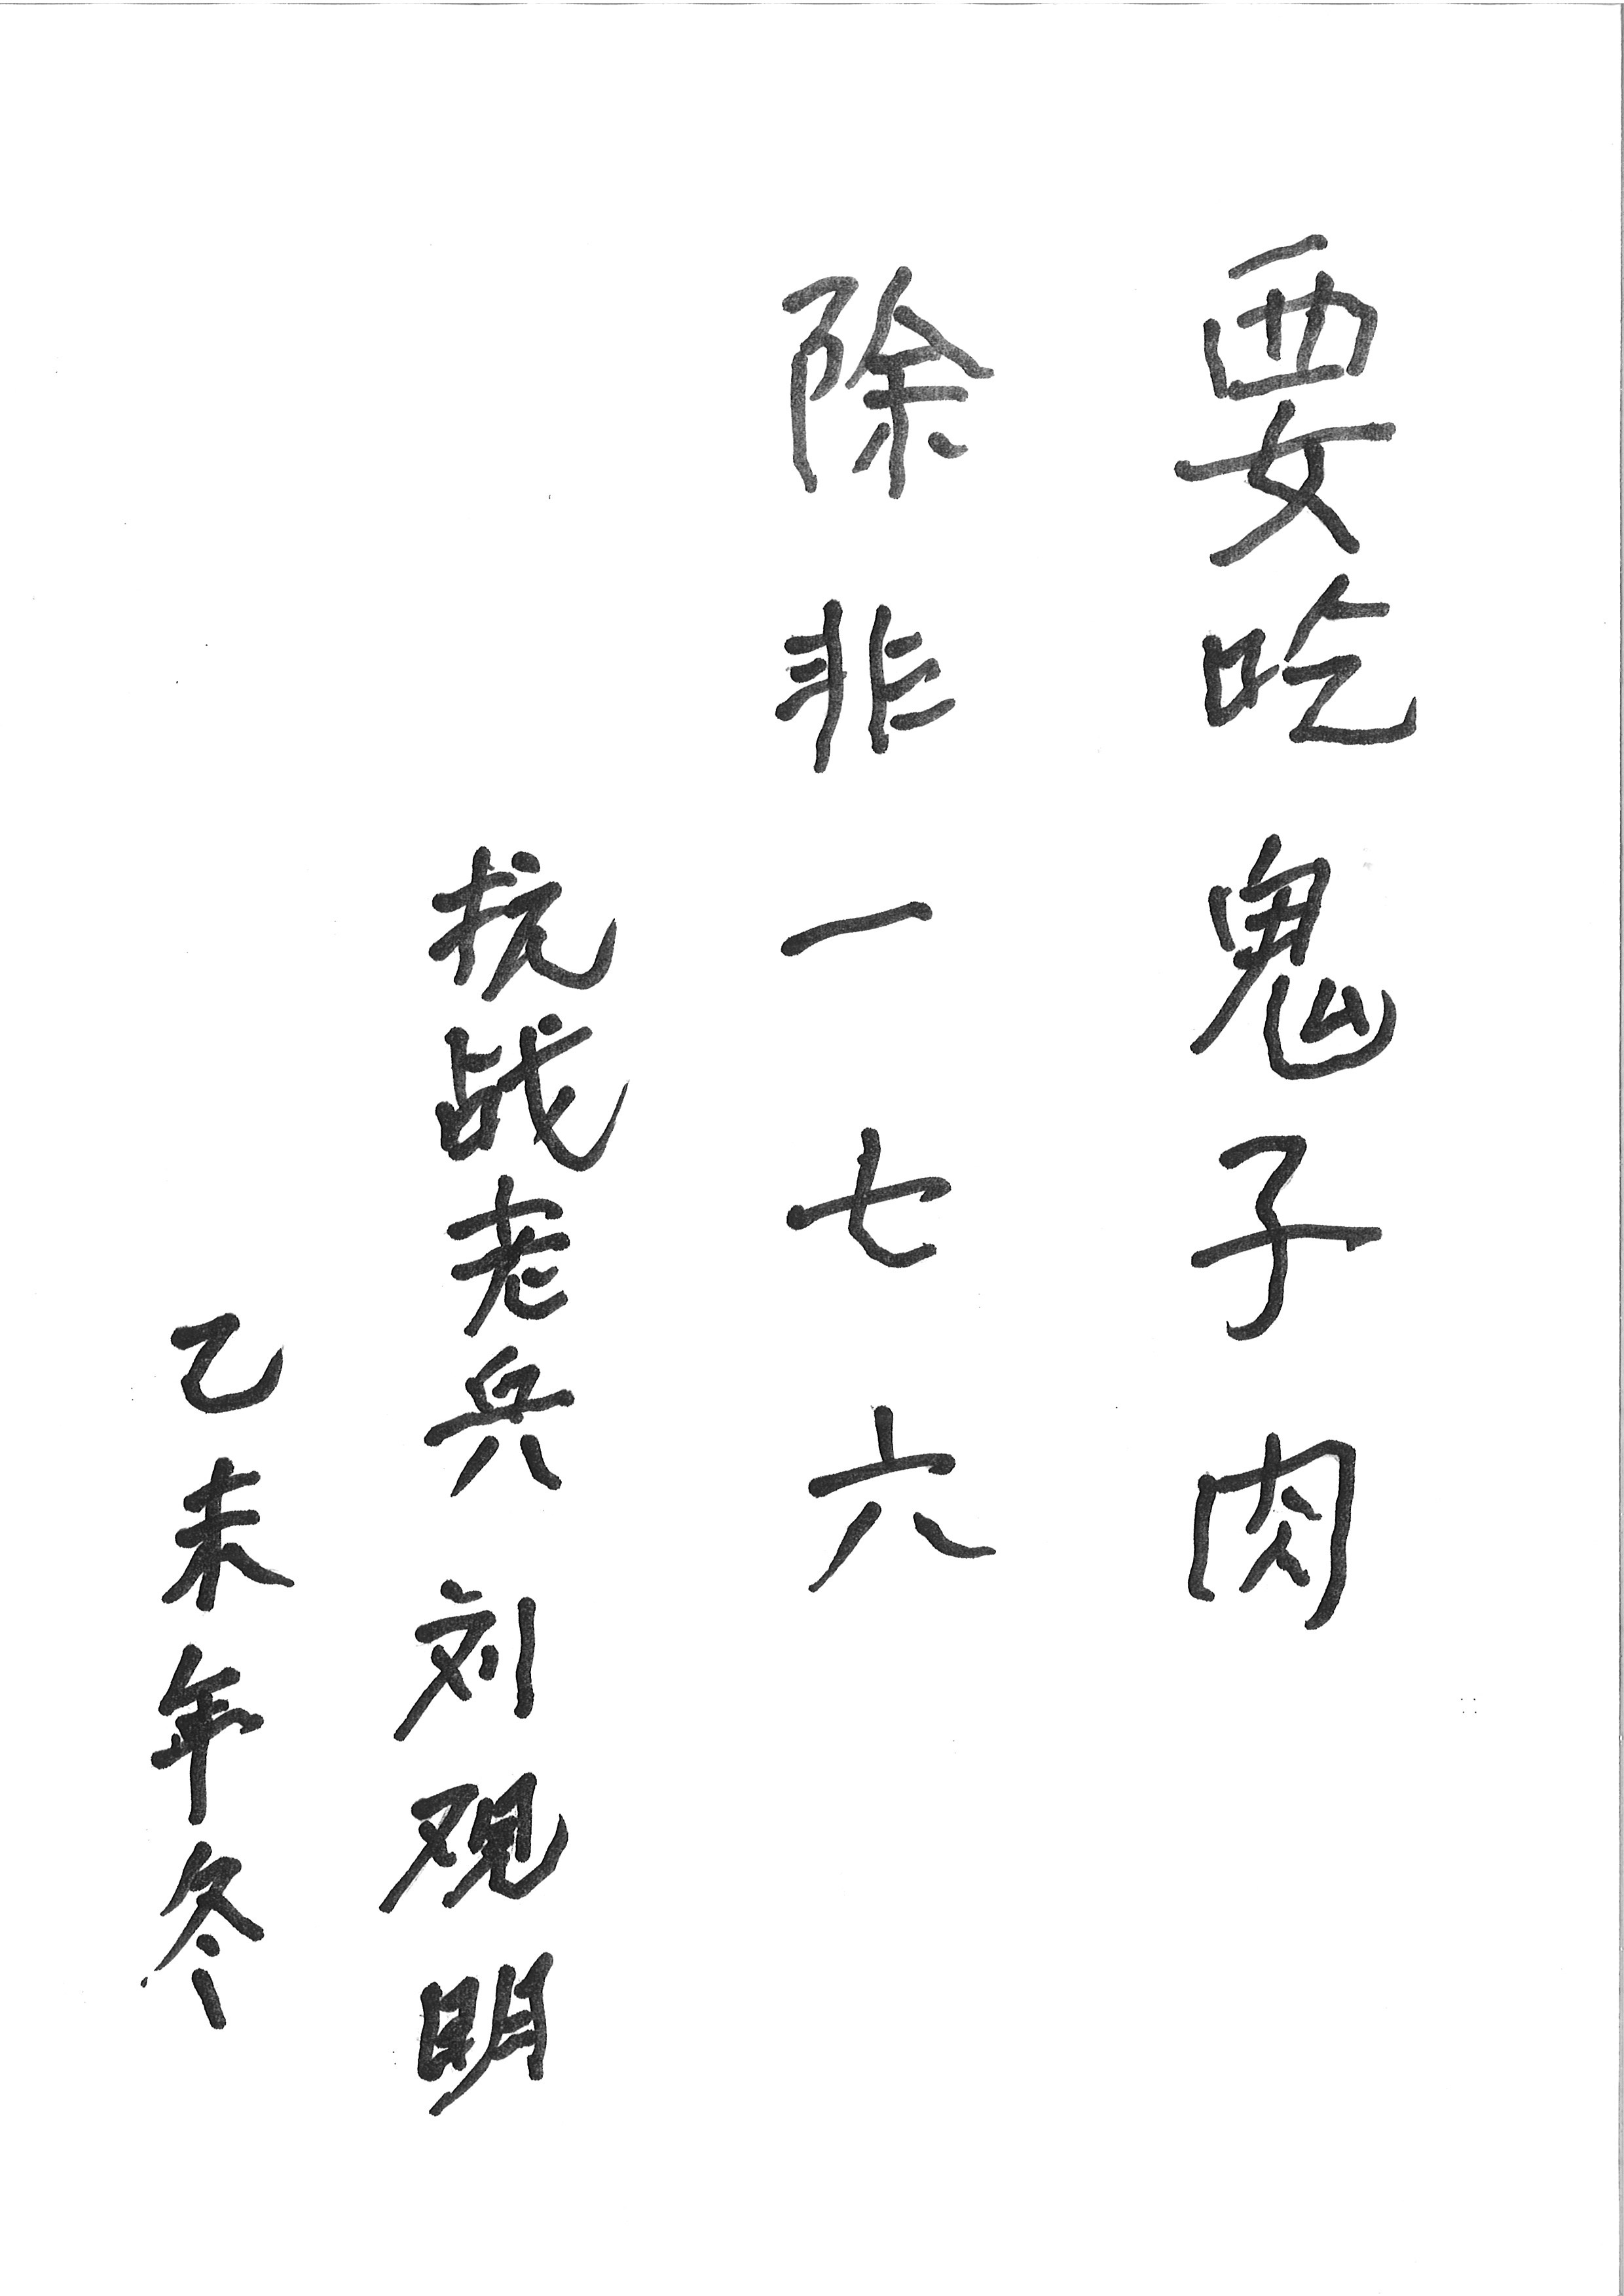 要吃鬼子肉
除非一七六
抗战老兵 刘砚明
乙未年冬